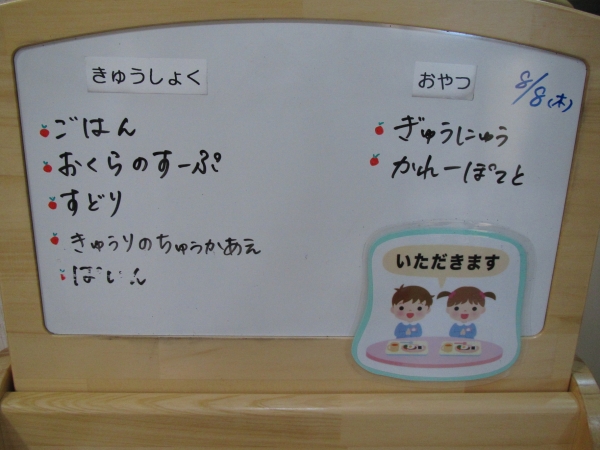 きゅうしょく
ごはん
おくらのすーぷ
すどり
きゅうりのちゅうかあえ
おやつ
8/8(木)
ぎゅうにゅう
かれーぽてと
いただきます